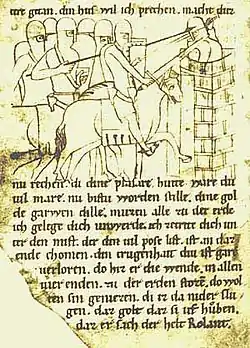 ture getan. din hus wil ich prechen. macht daz
nu rechen. di dine phaffe. hutte ware du
uil mare. nu bistu worden stille. dine gol
de garwen chille. muzen alle zu der erde
ich gelege dich unwerde. ich trete dich un
ter den mist. der din uil post list. ist in dar
ende chomen. den trugenhait du ist gare
uerloren. do hiz er die wende. in allen
uier enden. zu der erden store. do wol
ten sin genieren. di er da nider slu
gen. daz golt daz si uf huben.
daz er sach der helt Rolant.